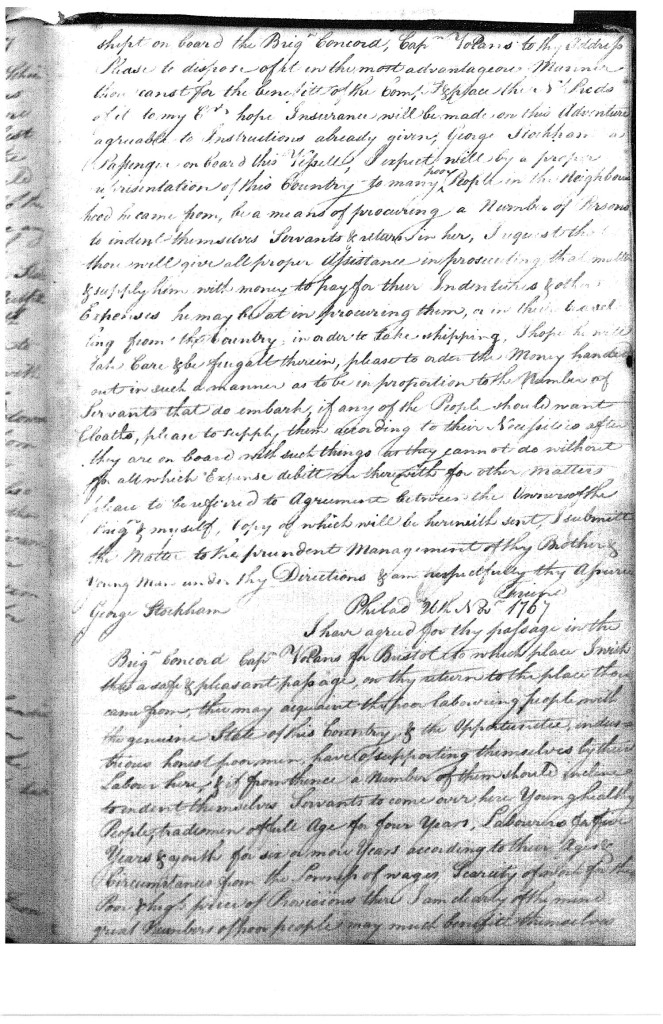 shipt on board the Brign Concord, Capn Volans to thy address
Please to dispose of it in the most advantageous Manner
thou canst for the benefitt of the Com, & place the Nt Prods
of it to my Crt hope Insurance will be made on this Adventure
agreable to Instructions already given, George Stockham a
Passenger on board this Vessell, I expect, will by a proper
representation of this Country to many poor People in the Neighbour
hood he came from, be a means of procuring a Number of Persons
to indent themselves Servants & return in her, I request that
thou will give all proper Assistance in prosecuting that matter
& supply him with money to pay for their Indentures & other
Expenses he may be at in procuring them, or in their travel
ling from the Country, in order to take shipping, I hope he will
take Care & be frugall therein, please to order the Money handed
out in such a manner as to be in proportion to the Number of
Servants that do embark, if any of the People should want
Cloaths, please to supply them according to their Necessities after
they are on board with such things as they cannot do without
for all which Expense debitt me therewith for other Matters
please to be referred to Agreement between the Owners of the
Brign & myself, Copy of which will be herewith sent, I submitt
the Matter to the prundent Management of thy Brother &
Young Man under thy Directions & am respectfully thy Assured
Friend
George Stockham Philad 26th Nor 1767
I have agreed for thy passage in the
Brign Concord Capn Volans for Bristol to which place I wish
thee a safe & pleasant passage, on thy return to the place thou
came from, thee may acquaint the poor labouring people with
the genuine State of this Country, & the Opportunities, indus=
trious honest poor men, have of supporting themselves by their
Labour here, & if from thence a Number of them should incline
to indent themselves Servants to come over here Young healthy
People, tradesmen of full Age for four Years, Labourers for five
Years & youth for six or more Years according to their Age &
Circumstances from the Lowness of wages, Scarcity of work for the
Poor & high price of Provisions there I am clearly of the mind
great Numbers of poor people may much benefitt themselves